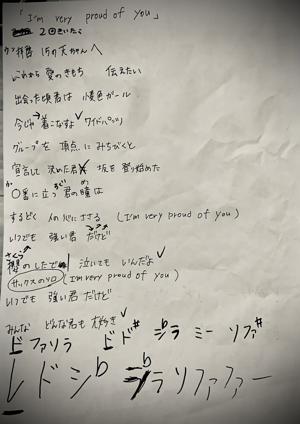 「I'm very proud of you」
2回きいたら
拝啓 15の天ちゃんへ
これから 愛のきもち 伝えたい
出会った頃君は 横色ガール
今じゃ 着こなすよ ワイドパンツ
グループを 頂点に みちびくと
宣言して 決いた君 坂を登り始めた
〇番に立つ君の瞳は
するどく 人の心にささる (I'm very proud of you)
いつでも 強い君 だけど
さくら
櫻のしたで 泣いても いんだよ
サックスのソロ (I'm very proud of you)
いつでも 強い君 だけど
みんな どんな君も 大好き
ドファソラ ドド# シラ ミー ソファ#
レドシb シbラソファファー